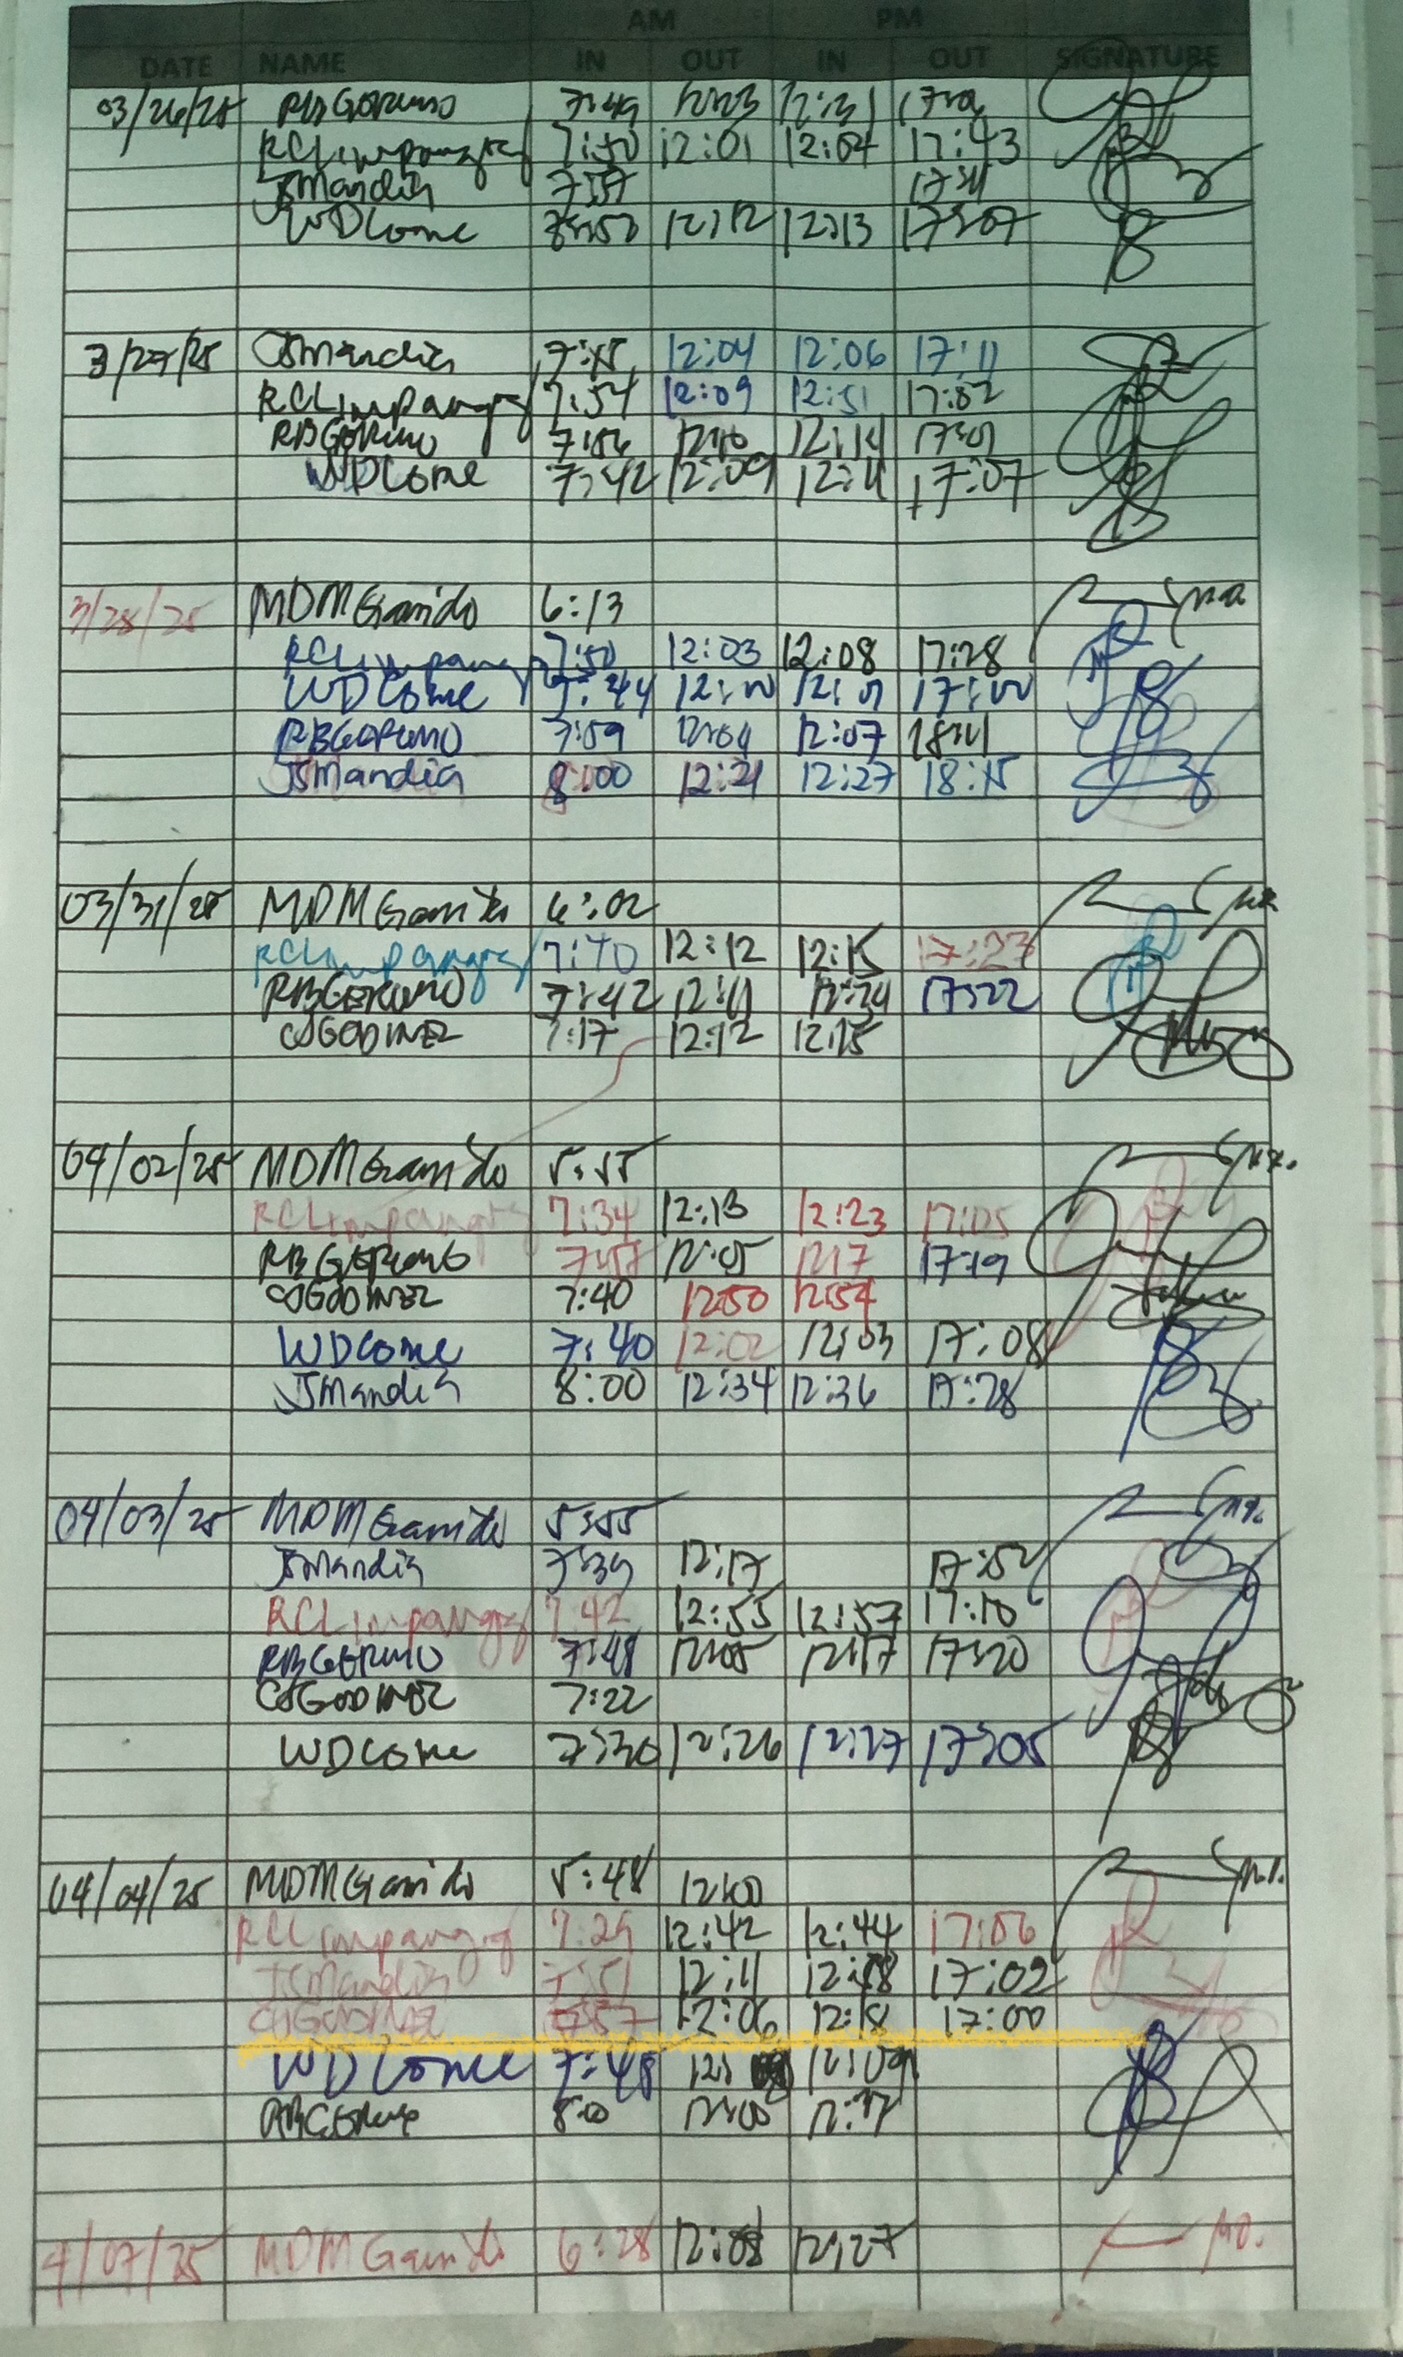 AM PM
DATE NAME IN OUT IN OUT SIGNATURE
03/26/25 RBGeruno 7:49 12:23 12:31
RCLimpangog 7:50 12:01 12:04 17:43
JSMandia 7:57
WDCome 12:12 12:13 17:07
3/27/25 JSMandia 7:45 12:04 12:06 17:11
RCLimpangog 7:54 12:09 12:51 17:52
RBGeruno 7:56 12:10 12:14 17:01
WDCome 7:42 12:09 12:11 17:07
3/28/25 MDMGarrido 6:13
RCLimpangog 7:50 12:03 12:08 17:28
WDCome 7:44 12:00 12:01 17:00
RBGeruno 7:59 12:04 12:07 18:11
JSMandia 8:00 12:21 12:27 18:15
03/31/25 MDMGarrido 6:02
RCLimpangog 7:40 12:12 12:15 17:27
RBGERUNO 7:42 12:11 12:24 17:22
CSGODINEZ 7:17 12:12 12:15
04/02/25 MDMGarrido 5:55
RCLimpangog 7:34 12:13 12:23 17:05
RBGERUNO 7:57 12:05 12:17 17:19
CSGODINEZ 7:40 12:50 12:54
WDCome 7:40 12:02 12:03 17:08
JSMandia 8:00 12:34 12:36 17:28
04/03/25 MDMGarrido 5:55
JSMandia 7:39 12:17 17:52
RCLimpangog 7:42 12:55 12:57 17:10
RBGERUNO 7:48 12:05 12:17 17:20
CSGODINEZ 7:22
WDCome 7:30 12:26 12:27 17:05
04/04/25 MDMGarrido 5:48 12:00
RCLimpangog 7:29 12:42 12:44 17:06
JSMandia 7:51 12:11 12:18 17:02
CSGODINEZ 7:57 12:06 12:18 17:00
WDCome 7:48 12:09
RBGeruno 8:00 12:00 12:17
4/07/25 MDMGarrido 6:28 12:08 12:27